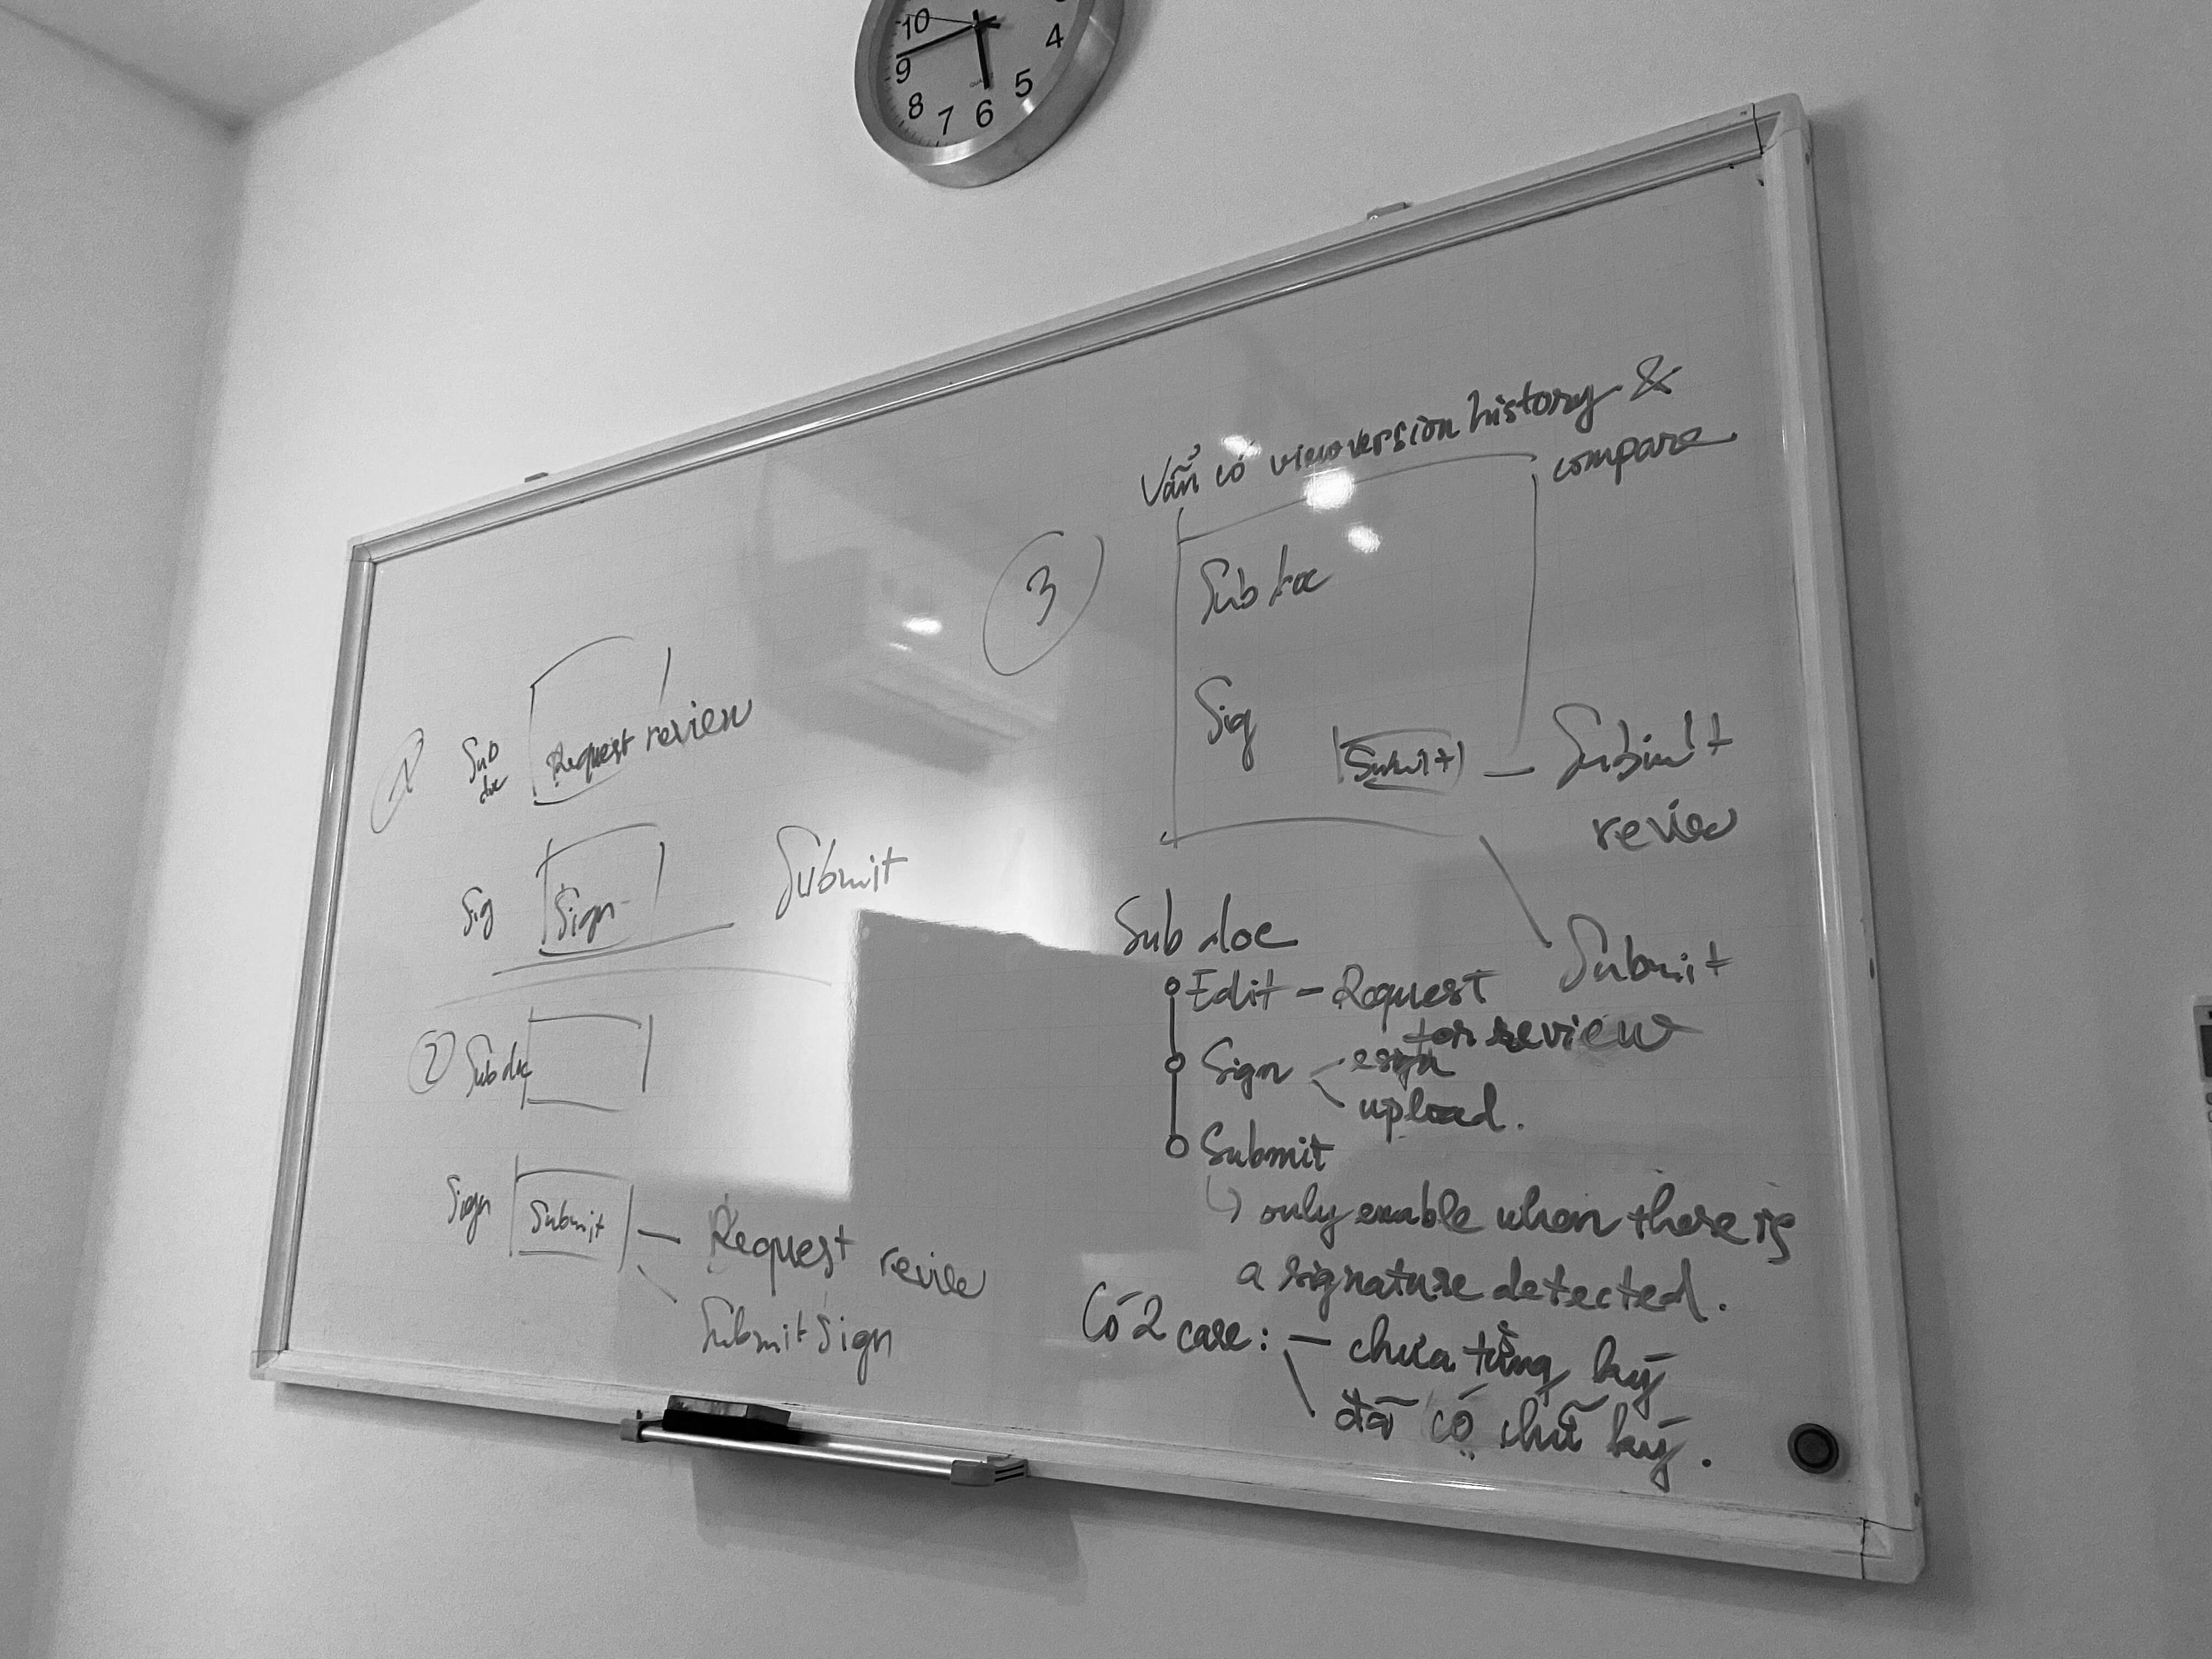 10
9
8
7
6
5
4
1
Sub
doc
Request review
Sig
Sign
Submit
2
Sub doc
Sign
Submit
Request review
Submit Sign
3
Vẫn có view version history &
compare
Sub doc
Sig
Submit
Submit
review
Submit
Sub doc
Edit - Request
for review
Sign
esign
upload.
Submit
only enable when there is
a signature detected.
Có 2 case: - chưa từng ký
đã có chữ ký.